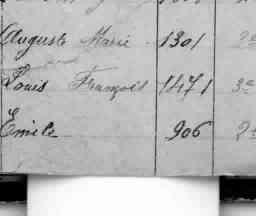 Auguste Marie 1301 2e
Louis François 1471 3e
Emile 906 2e